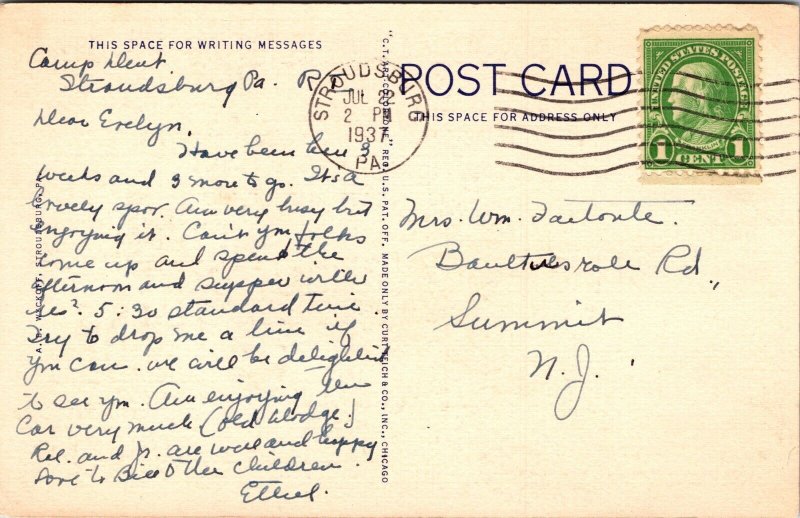 THIS SPACE FOR WRITING MESSAGES
Camp Dent
Stroudsburg Pa.
Dear Evelyn,
Have been here 3
weeks and 3 more to go. It's a
lovely spot. Am very busy but
enjoying it. Can't you folks
come up and spend the
afternoon and supper with
us? 5:30 standard time
Try to drop me a line if
you can. we will be delighted
to see you. Am enjoying the
car very much (old Dodge.)
and Jr. are well and happy
Love to Bill & the children.
Ethel.
"C.T. ART-COLORTONE" REG. U.S. PAT. OFF. MADE ONLY BY CURT TEICH & CO., INC., CHICAGO
STROUDSBURG
JUL 22
2 PM
1937
PA.
POST CARD
THIS SPACE FOR ADDRESS ONLY
UNITED STATES POSTAGE
1 CENT 1
Mrs. Wm.
Rd.,
Summit
N.J.